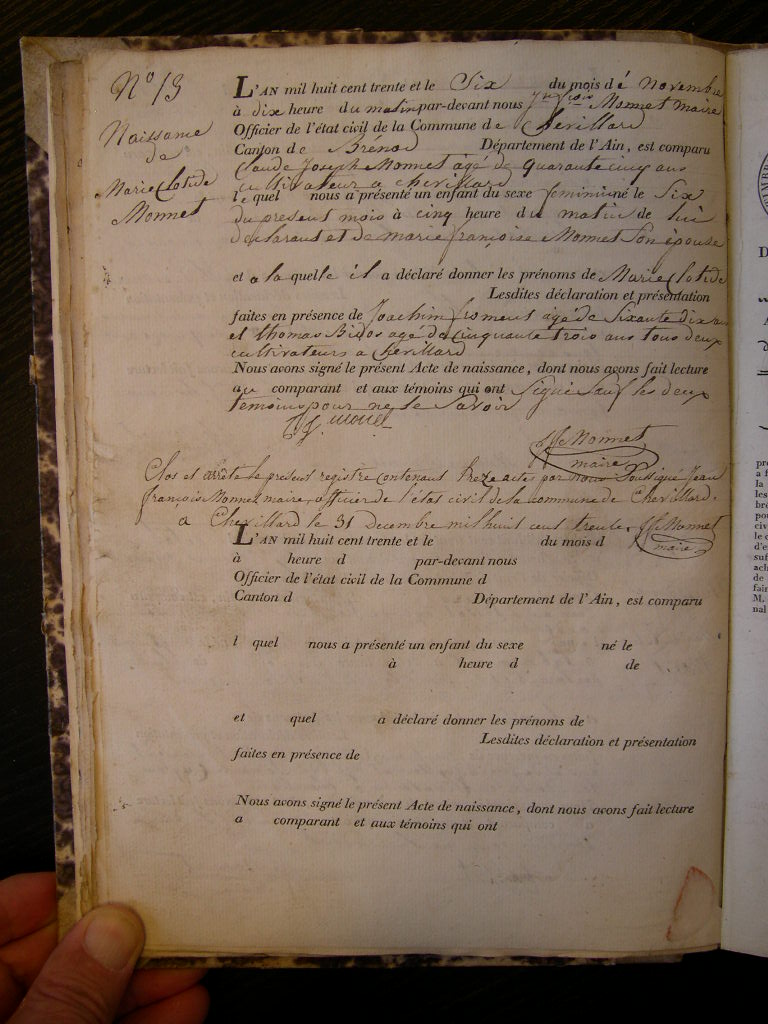 N° 13
Naissance
de
Marie Clotide
Monnet
L'AN mil huit cent trente et le Six du mois de Novembre
à dix heure du matin par-devant nous Jn fçois Monnet maire
Officier de l'état civil de la Commune de Chevillard
Canton de Brenod Département de l'Ain, est comparu
Claude Joseph Monnet agé de quarante cinq ans
cultivateur a chevillard
le quel nous a présenté un enfant du sexe feminin né le Six
du present mois à cinq heure du matin de lui
déclarant et de marie françoise Monnet Son épouse
et a la quelle il a déclaré donner les prénoms de Marie Clotide
Lesdites déclaration et présentation
faites en présence de Joachim froment âgé de Sixante dix ans
et thomas Bidos agé de cinquante trois ans tous deux
cultivateurs a Chevillard
Nous avons signé le présent Acte de naissance, dont nous avons fait lecture
au comparant et aux témoins qui ont Signé Sauf les deux
temoins pour ne le Savoir
Monnet
maire
Clos et arrête le présent registre contenant treze actes par nous Soussigné Jean
françois Monnet maire, officier de l'état civil de la commune de Chevillard.
a Chevillard le 31 Decembre mil huit cent trente. Monnet
maire
L'AN mil huit cent trente et le du mois d
à heure d par-devant nous
Officier de l'état civil de la Commune d
Canton d Département de l'Ain, est comparu
l quel nous a présenté un enfant du sexe né le
à heure d de
et quel a déclaré donner les prénoms de
Lesdites déclaration et présentation
faites en présence de
Nous avons signé le présent Acte de naissance, dont nous avons fait lecture
a comparant et aux témoins qui ont